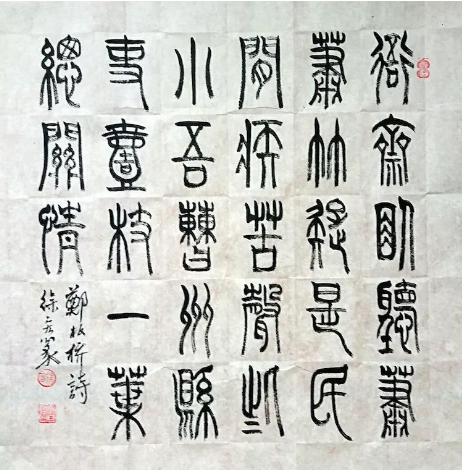 衙齋臥聽蕭
蕭竹疑是民
間疾苦聲些
小吾曹州縣
吏壹枝一葉
總關情
鄭板橋詩
徐篆